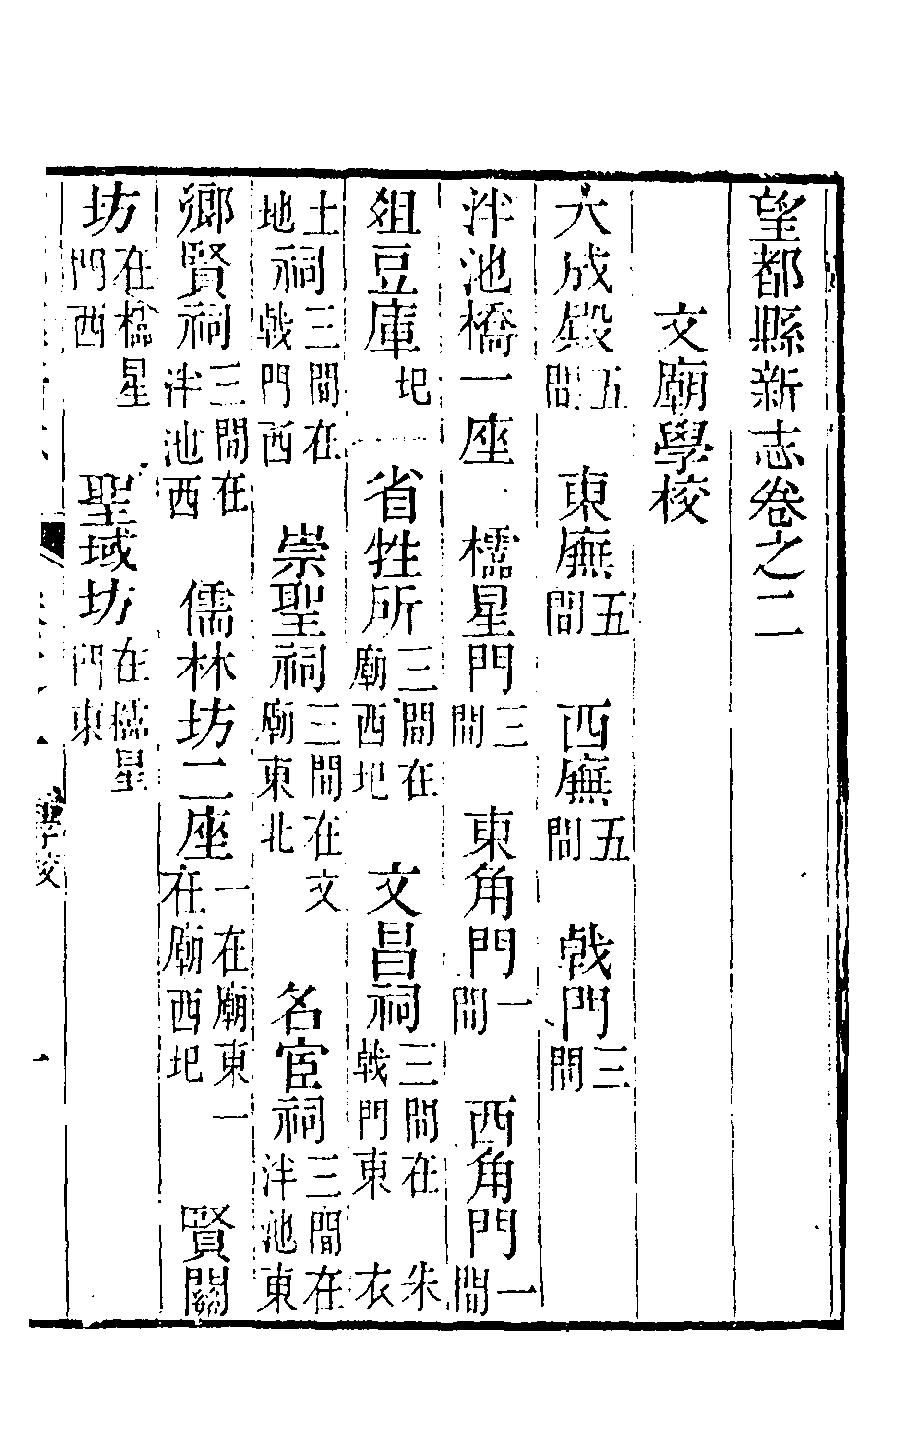 望都縣新志卷之二
文廟學校
大成殿五間　東廡五間　西廡五間　戟門三間
泮池橋一座　櫺星門三間　東角門一間　西角門一間
爼豆庫圮　省牲所三間在廟西圮　文昌祠三間在戟門東　朱衣
土地祠三間在戟門西　崇聖祠三間在文廟東北　名宦祠三間在泮池東
鄉賢祠三間在泮池西　儒林坊二座一在廟東一在廟西圮　賢關
坊在櫺星門西　聖域坊在櫺星門東
學校　一